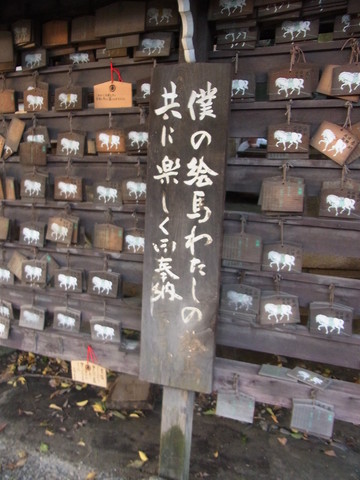 僕の絵馬わたしの
共に楽しく御奉納